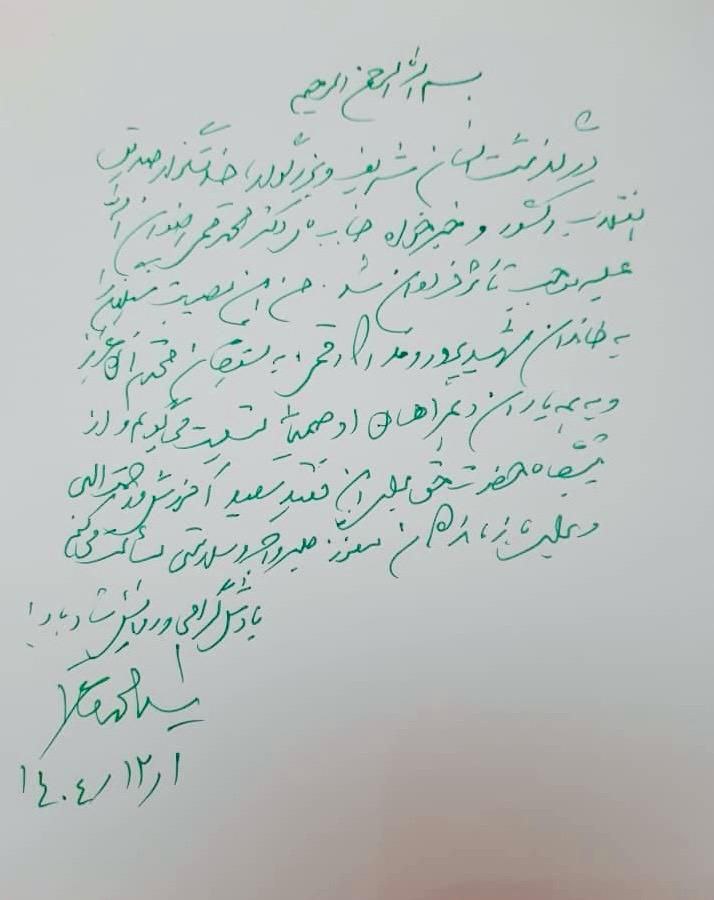 بسم الله الرحمن الرحیم
درگذشت انسان شریف و بزرگوار، خدمتگزار صدیق
انقلاب و کشور و خیرخواه جناب دکتر محمد قمی رضوان الله
علیه موجب تأثر فراوان شد. من این مصیبت
به خاندان شهید پرور و قمی، به بستگان محترم آن عزیز
و به همه یاران و همراهان او صمیمانه تسلیت می‌گویم و از
پیشگاه حضرت حق برای آن فقید سعید آمرزش و رحمت الهی
و برای بازماندگان معزز صبر و اجر و سلامتی مسألت می‌کنم
یادش گرامی و روانش شاد باد!
سید محمد
۱۴۰۴/۱۲/۱